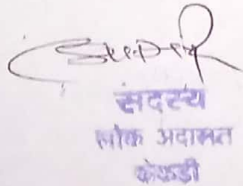 सदस्य
लोक अदालत
केकड़ी